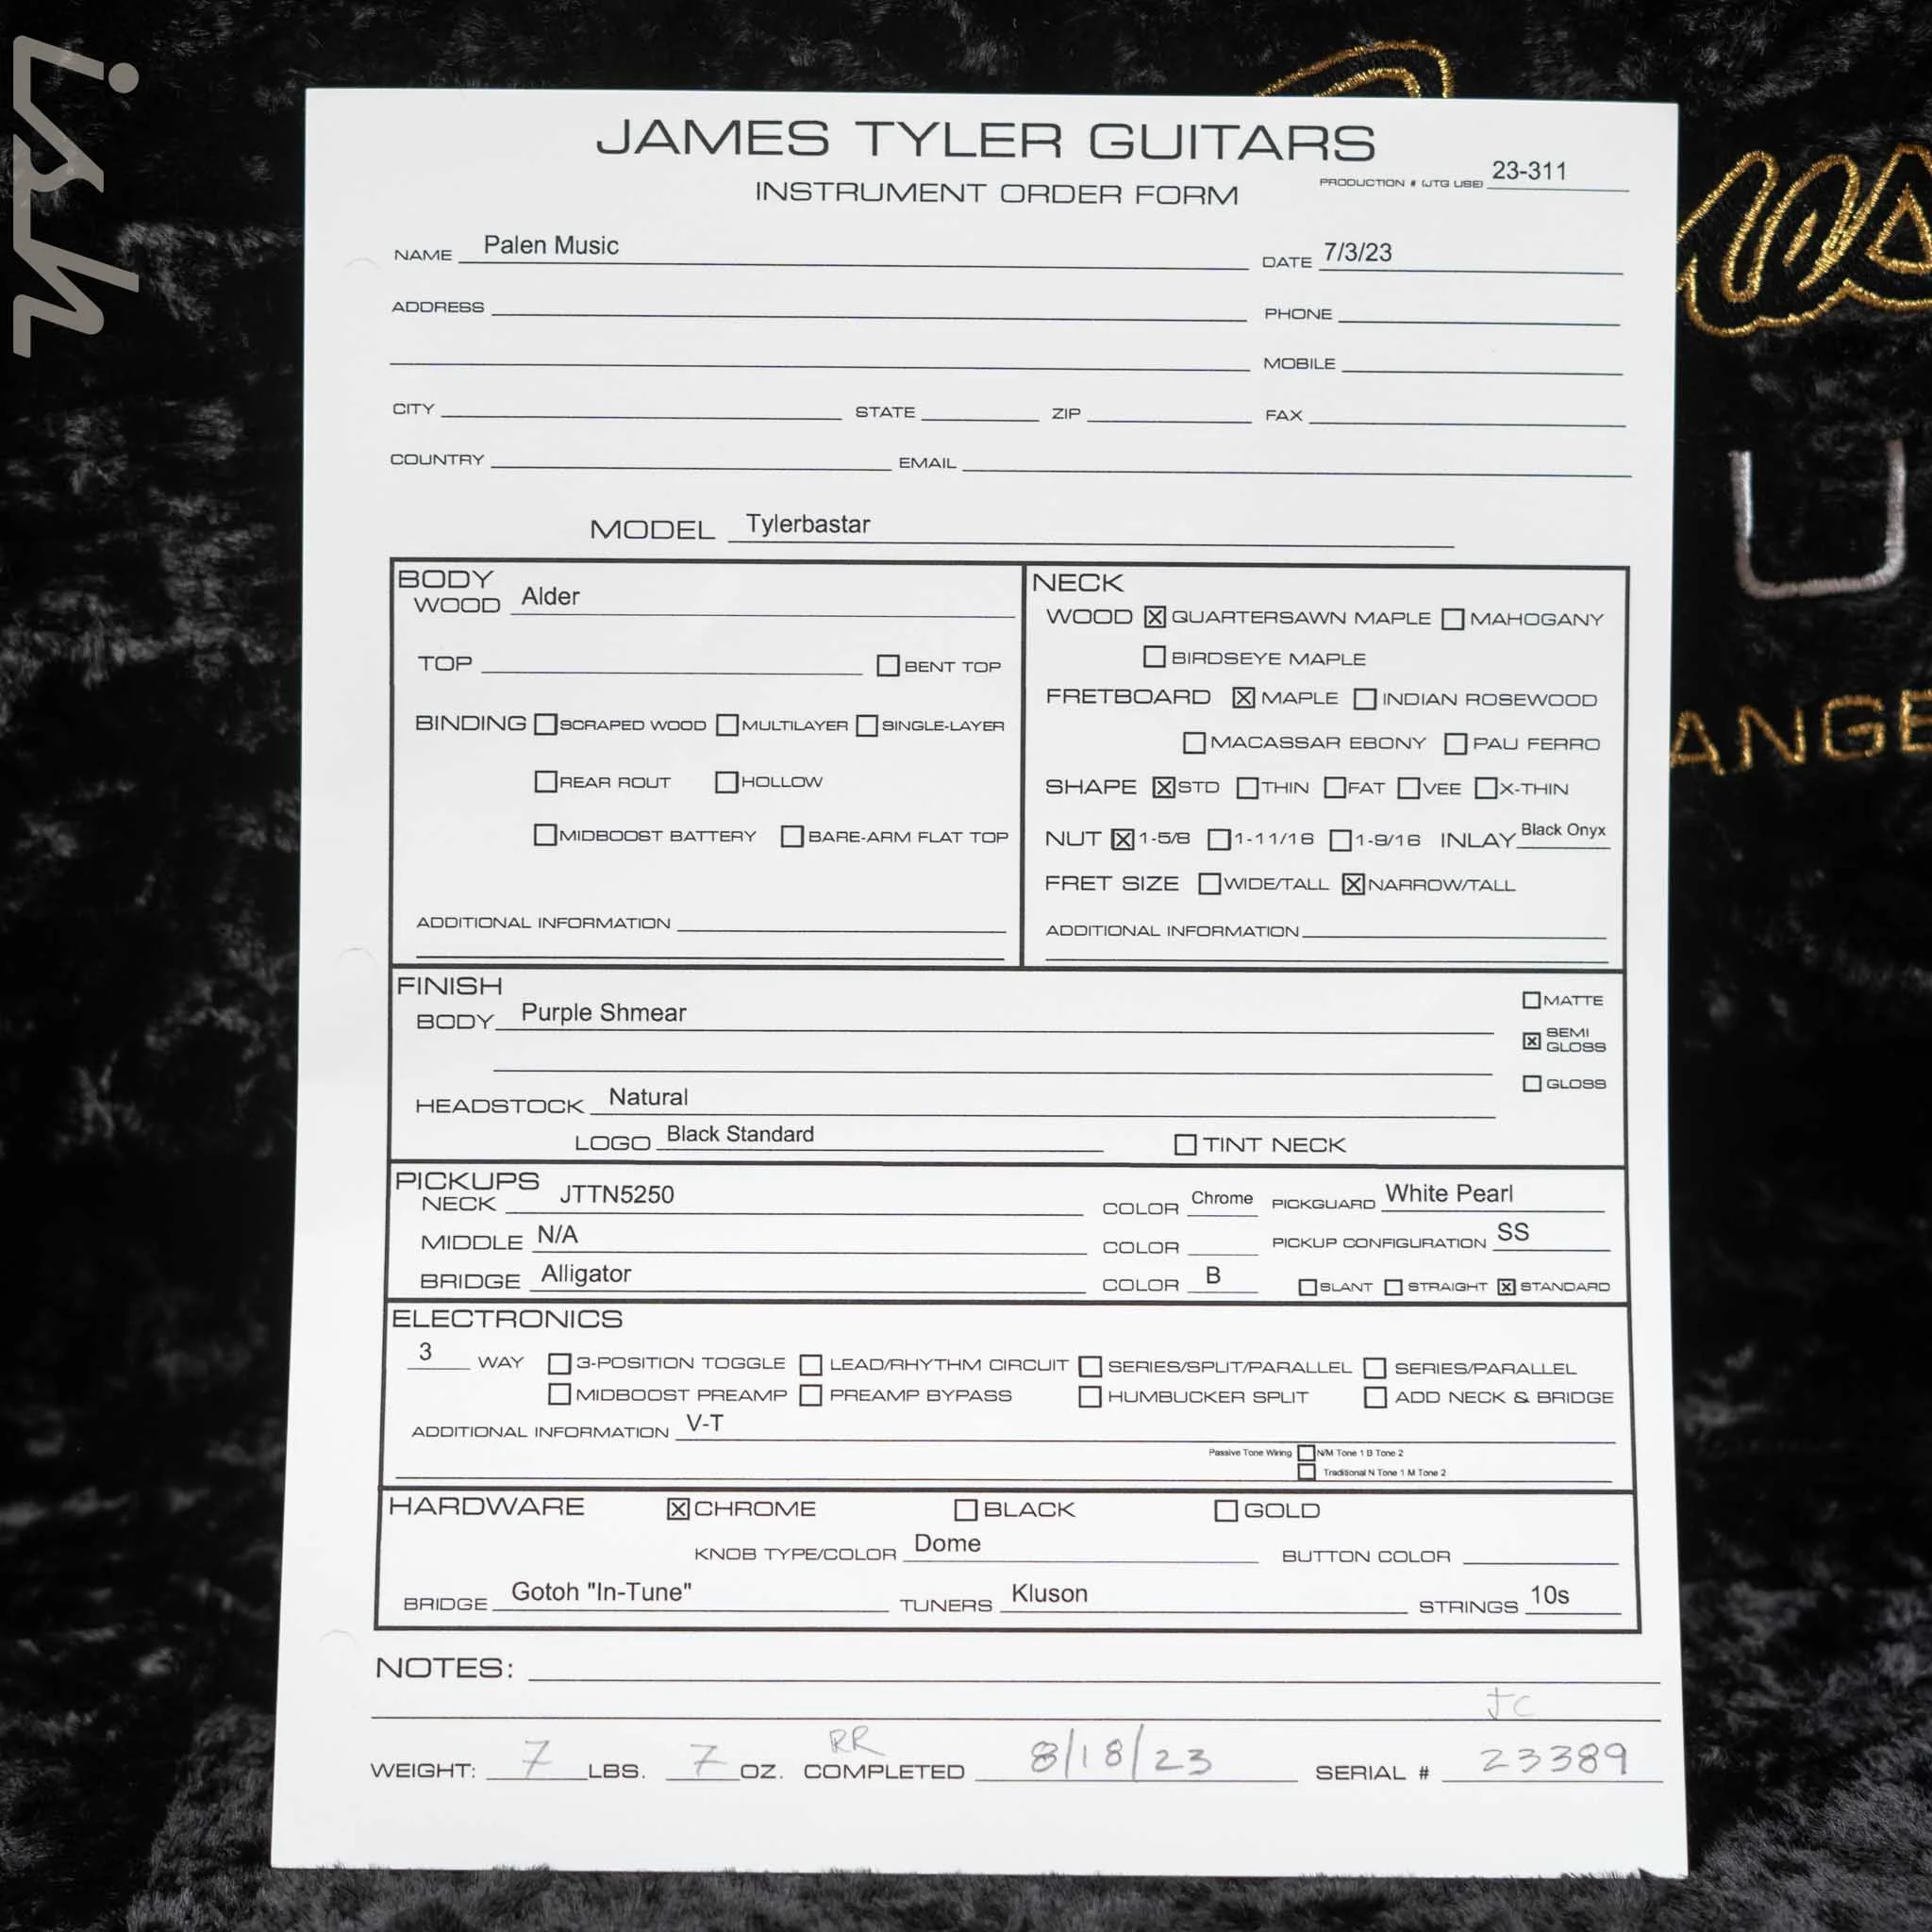 ish
JAMES TYLER GUITARS
INSTRUMENT ORDER FORM
PRODUCTION # (JTG USE) 23-311
NAME Palen Music DATE 7/3/23
ADDRESS PHONE
MOBILE
CITY STATE ZIP FAX
COUNTRY EMAIL
MODEL Tylerbastar
BODY
WOOD Alder
TOP ☐ BENT TOP
BINDING ☐ SCRAPED WOOD ☐ MULTILAYER ☐ SINGLE-LAYER
☐ REAR ROUT ☐ HOLLOW
☐ MIDBOOST BATTERY ☐ BARE-ARM FLAT TOP
ADDITIONAL INFORMATION
NECK
WOOD ☒ QUARTERSAWN MAPLE ☐ MAHOGANY
☐ BIRDSEYE MAPLE
FRETBOARD ☒ MAPLE ☐ INDIAN ROSEWOOD
☐ MACASSAR EBONY ☐ PAU FERRO
SHAPE ☒ STD ☐ THIN ☐ FAT ☐ VEE ☐ X-THIN
NUT ☒ 1-5/8 ☐ 1-11/16 ☐ 1-9/16 INLAY Black Onyx
FRET SIZE ☐ WIDE/TALL ☒ NARROW/TALL
ADDITIONAL INFORMATION
FINISH
BODY Purple Shmear
☐ MATTE
☒ SEMI GLOSS
☐ GLOSS
HEADSTOCK Natural
LOGO Black Standard ☐ TINT NECK
PICKUPS
NECK JTTN5250 COLOR Chrome PICKGUARD White Pearl
MIDDLE N/A COLOR PICKUP CONFIGURATION SS
BRIDGE Alligator COLOR B ☐ SLANT ☐ STRAIGHT ☒ STANDARD
ELECTRONICS
3 WAY ☐ 3-POSITION TOGGLE ☐ LEAD/RHYTHM CIRCUIT ☐ SERIES/SPLIT/PARALLEL ☐ SERIES/PARALLEL
☐ MIDBOOST PREAMP ☐ PREAMP BYPASS ☐ HUMBUCKER SPLIT ☐ ADD NECK & BRIDGE
ADDITIONAL INFORMATION V-T
Passive Tone Wiring ☐ N/M Tone 1 B Tone 2
☐ Traditional N Tone 1 M Tone 2
HARDWARE ☒ CHROME ☐ BLACK ☐ GOLD
KNOB TYPE/COLOR Dome BUTTON COLOR
BRIDGE Gotoh "In-Tune" TUNERS Kluson STRINGS 10s
NOTES:
JC
RR
WEIGHT: 7 LBS. 7 OZ. COMPLETED 8/18/23 SERIAL # 23389
U
ANGE